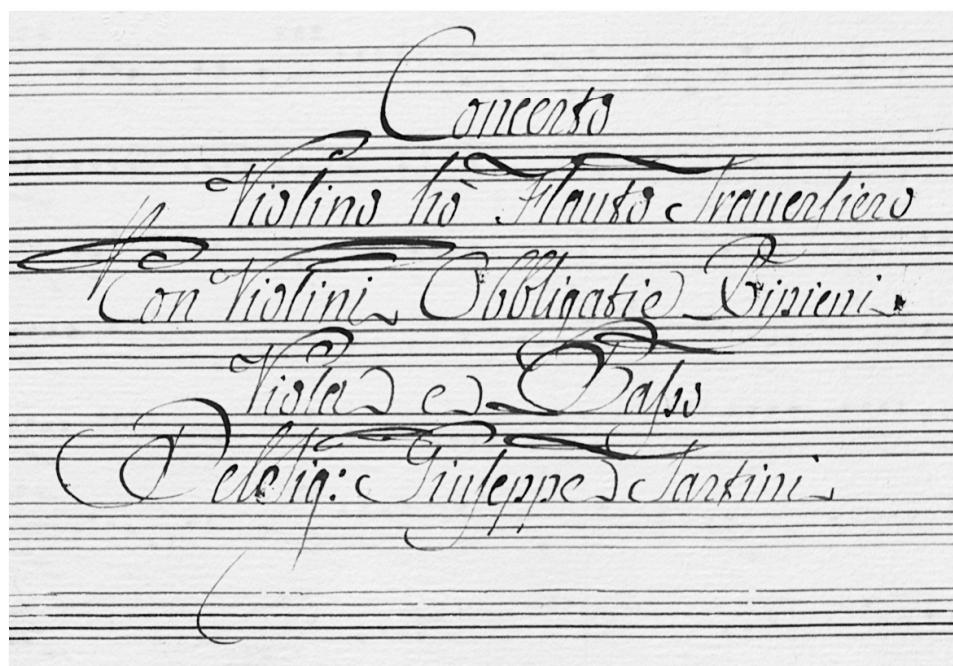 Concerto
Violino hò Flauto Trauerſiero
Con Violini Obbligati e Ripieni
Viola e Baſso
Del Sig: Giuſeppe Tartini